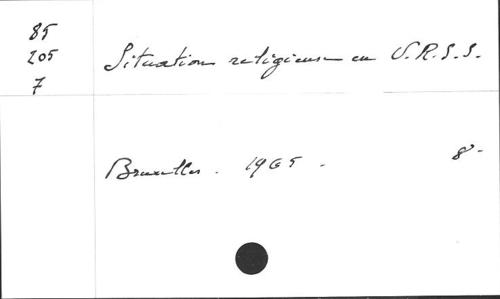 85
205
7
Situation religieuse en U.R.S.S.
Bruxelles. 1965. 8°